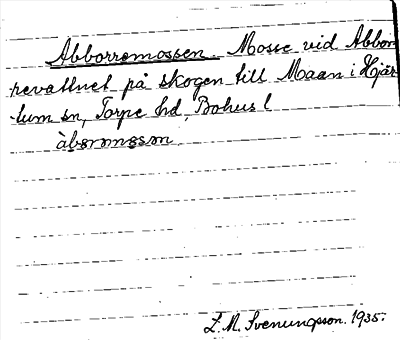 Abborremossen. Mosse vid Abbor
revattnet på skogen till Maan i Hjär
tum sn, Torpe hd, Bohus l
L. M. Svenungsson. 1935.